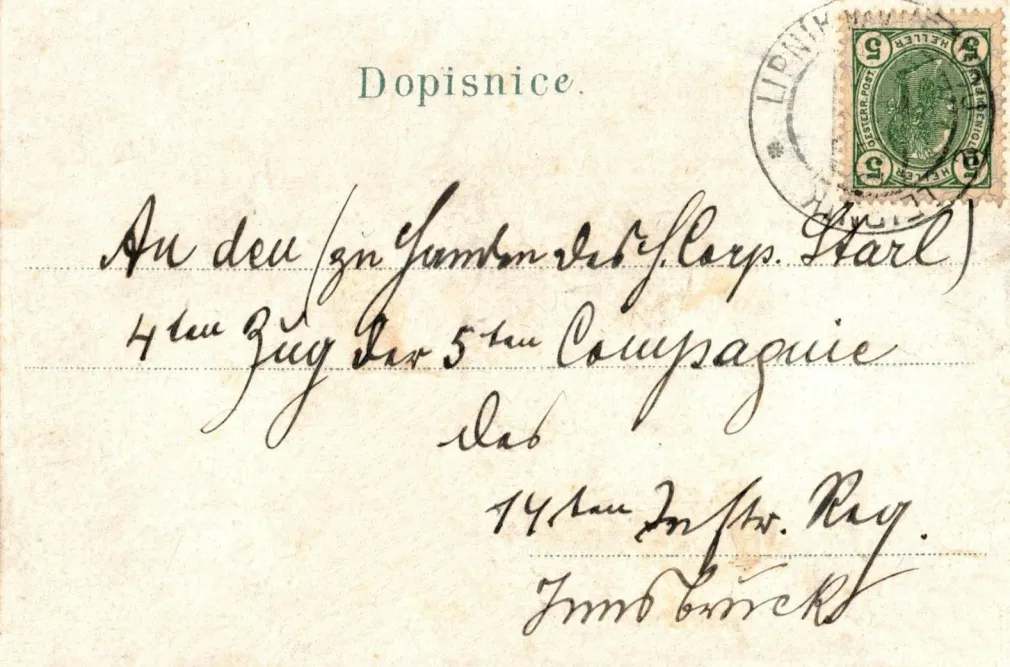 Dopisnice.
LIPNIK
5 HELLER 5
OESTERR. POST
5 HELLER 5
An den (zu Handen des H. Corp. Starl)
4ten Zug der 5ten Compagnie
des
14ten Inftr. Reg.
Innsbruck